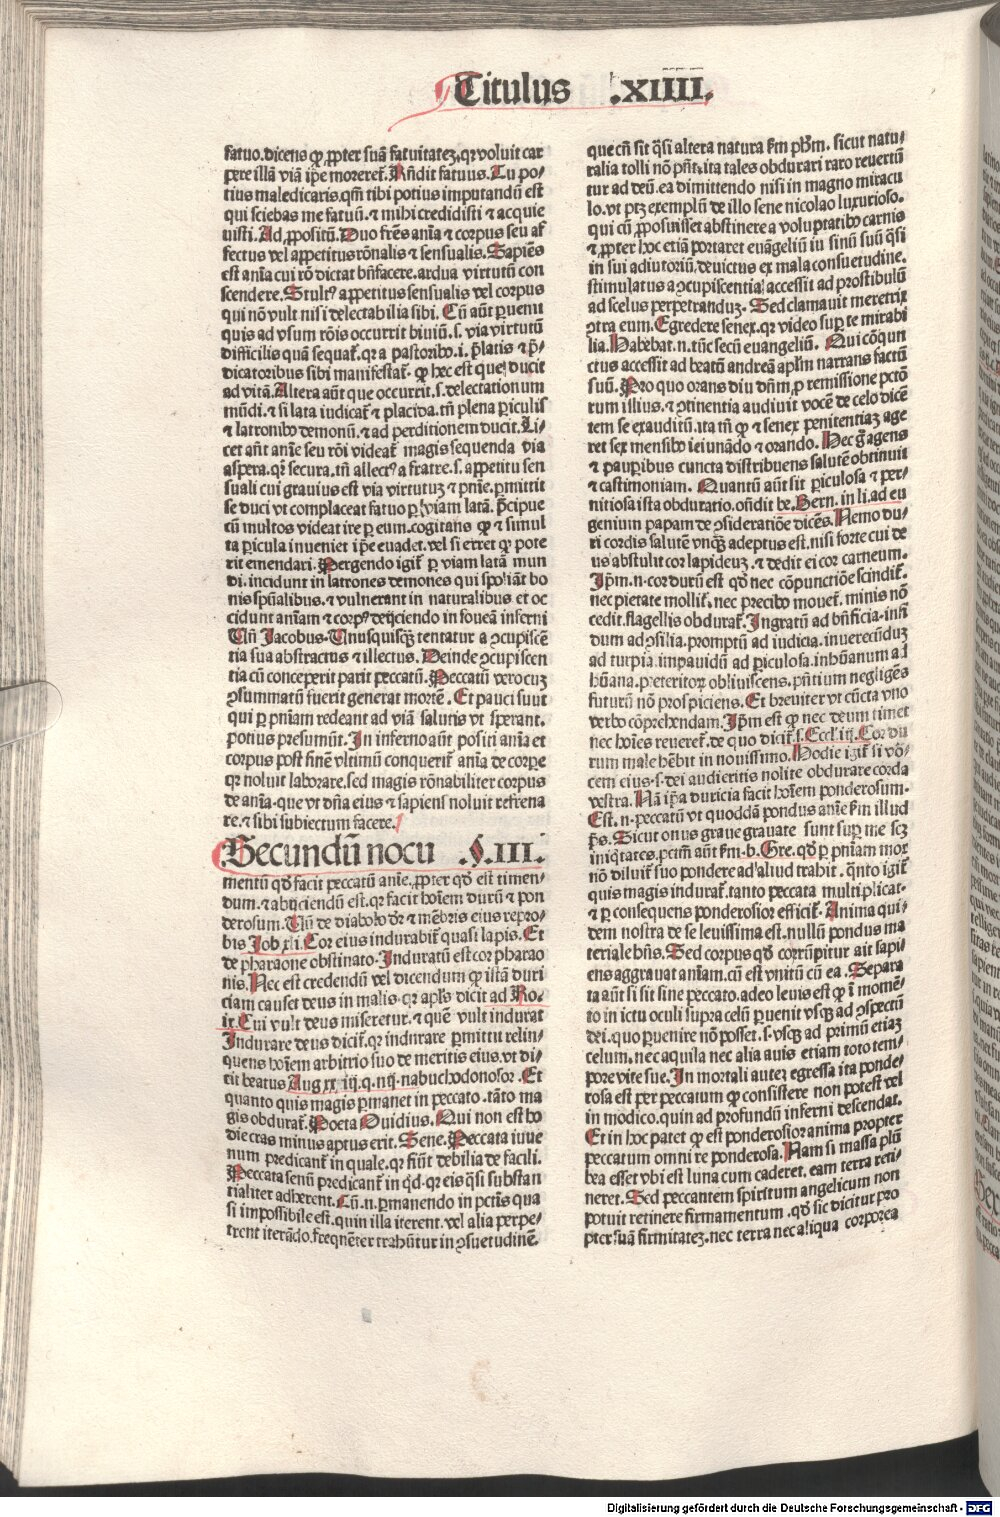 Titulus .XIIII.
fatuo. dicens ꝙ ꝓpter suã fatuitatẽ. qꝛ voluit car
pere illã viã ip̃e moreret̃. Rñdit fatuus. Tu po⸗
tius maledicaris. qm̃ tibi potius imputandũ est
qui sciebas me fatuũ. ⁊ mihi credidisti ⁊ acquie
uisti. Ad ꝓpositũ. Duo frẽs anĩa ⁊ corpus seu af
fectus vel appetitus rõnalis ⁊ sensualis. Sapiẽs
est anĩa cui rõ dictat bñfacere. ardua virtutũ con
scendere. Stultꝰ appetitus sensualis vel corpus
qui nõ vult nisi delectabilia sibi. Cũ aũt ꝑuenit
quis ad vsum rõis occurrit biuiũ. s. via virtutũ
difficilis quã sequat̃. qꝛ a pastoribꝰ. i. p̃latis ⁊ p̃⸗
dicatoribus sibi manifestat̃. ꝙ hec est que ducit
ad vitã. Altera aũt que occurrit. s. delectationum
mũdi. ⁊ si lata iudicat̃ ⁊ placida. tñ plena ꝑiculis
⁊ latronibꝰ demonũ. ⁊ ad perditionem ducit. Li⸗
cet aũt anĩe seu rõi videat̃ magis sequenda via
aspera. qꝛ secura. tñ allectꝰ a fratre. s. appetitu sen
suali cui grauius est via virtutuꝫ ⁊ pñie. ꝑmittit
se duci vt complaceat fatuo ꝑ viam latã. P̃cipue
cũ multos videat ire ꝑ eum. cogitans ꝙ ⁊ simul
ta ꝑicula inueniet ip̃e euadet. vel si erret ꝙ pote
rit emendari. Pergendo igit̃ ꝑ viam latã mun
di. incidunt in latrones demones qui spoliãt bo
nis spũalibus. ⁊ vulnerant in naturalibus et oc
cidunt anĩam ⁊ corpꝰ deijciendo in foueã inferni
Vñ Jacobus. Vnusquisqꝫ tentatur a ꝯcupiscẽ
tia sua abstractus ⁊ illectus. Deinde ꝯcupiscen
tia cũ conceperit parit peccatũ. Peccatũ vero cuꝫ
ꝯsummatũ fuerit generat mortẽ. Et pauci sunt
qui ꝑ pñiam redeant ad viã salutis vt sperant.
potius presumũt. In inferno aũt positi anĩa et
corpus post finẽ vltimũ conquerit̃ anĩa de corpe
qꝛ noluit laborare. sed magis rõnabiliter corpus
de anĩa. que vt dña eius ⁊ sapiens noluit refrena
re. ⁊ sibi subiectum facere.
Secundũ nocu .§.III.
mentũ qd̃ facit peccatũ anĩe. ꝓpter qd̃ est timen⸗
dum. ⁊ abijciendũ est. qꝛ facit hoĩem durũ ⁊ pon
derosum. Vñ de diabolo dr̃ ⁊ mẽbris eius repro⸗
bis Job xli. Cor eius indurabit̃ quasi lapis. Et
de pharaone obstinato. Induratũ est cor pharao
nis. Nec est credendũ vel dicendum ꝙ istã duri
ciam causet deus in malis. qꝛ apl̃s dicit ad Ro.
ix. Cui vult deus miseretur. ⁊ quẽ vult indurat
Indurare deus dicit̃. qꝛ indurare ꝑmittit relin⸗
quens hoĩem arbitrio suo de meritis eius. vt di⸗
cit beatus Aug. xxiij. q. iiij. nabuchodonosor. Et
quanto quis magis ꝑmanet in peccato. tãto ma
gis obdurat̃. Poeta Ouidius. Qui non est ho
die cras minus aptus erit. Sene. Peccata iuue
num predicant̃ in quale. qꝛ fiũt debilia de facili.
Peccata senũ predicant̃ in qd̃. qꝛ eis q̃si substan
tialiter adherent. Cũ. n. ꝑmanendo in pctĩs qua
si impossibile est. quin illa iterent. vel alia perpe⸗
trent iterãdo. freqnẽter trahũtur in ꝯsuetudinẽ.
que cñ sit q̃si altera natura ẜm ph̃m. sicut natu⸗
ralia tolli nõ pñt. ita tales obdurati raro reuertũ
tur ad deũ. ea dimittendo nisi in magno miracu
lo. vt ptꝫ exemplũ de illo sene nicolao luxurioso.
qui cũ ꝓposuisset abstinere a voluptatibꝰ carnis
⁊ ꝓpter hoc etiã portaret euãgeliũ iu sinũ suũ q̃si
in sui adiutoriũ. deuictus ex mala consuetudine.
stimulatus a ꝯcupiscentia accessit ad prostibulũ
ad scelus perpetranduꝫ. Sed clamauit meretrix
ꝯtra eum. Egredere senex. qꝛ video suꝑ te mirabi
lia. Habebat. n. tũc secũ euangeliũ. Qui cõpun
ctus accessit ad beatũ andreã apl̃m narrans factũ
suũ. Pro quo orans diu dñm ꝓ remissione pctõ
rum illius. ⁊ ꝯtinentia audiuit vocẽ de celo dicẽ
tem se exauditũ. ita tñ ꝙ ⁊ senex penitentiaꝫ age
ret sex mensibꝰ ieiunãdo ⁊ orando. Hec g̃ agens
⁊ pauꝑibus cuncta distribuens salutẽ obtinuit
⁊ castimoniam. Quantũ aũt sit ꝑiculosa ⁊ per⸗
nitiosa ista obduratio. oñdit be. Bern. in li. ad eu
genium papam de ꝯsideratiõe dicẽs. Nemo du⸗
ri cordis salutẽ vnqꝫ adeptus est. nisi forte cui de
us abstulit cor lapideuꝫ. ⁊ dedit ei cor carneum.
Ip̃m. n. cor durũ est qd̃ nec cõpunctiõe scindit̃.
nec pietate mollit̃. nec precibꝰ mouet̃. minis nõ
cedit. flagellis obdurat̃. Ingratũ ad bñficia. infi
dum ad ꝯsilia. promptũ ad iudicia. inuerecũduꝫ
ad turpia. impauidũ ad ꝑiculosa. inhũanum ad
hũana. preteritoꝝ obliuiscens. pñtium negligẽs
futurũ nõ prospiciens. Et breuiter vt cũcta vno
verbo cõprehendam. Ip̃m est ꝙ nec deum timet
nec hoĩes reueret̃. de quo dicit̃. s. Eccl̃. iij. Cor du
rum male hẽbit in nouissimo. Hodie igit̃ si vo⸗
cem eius. s. dei audieritis nolite obdurare corda
vestra. Nã ip̃a duricia facit hoĩem ponderosum.
Est. n. peccatũ vt quoddã pondus anĩe ẜm illud
p̃s. Sicut onus graue grauate sunt suꝑ me scꝫ
iniq̃tates. pctm̃ aũt ẜm. b. Gre. qd̃ ꝑ pñiam mor
nõ diluit̃ suo pondere ad aliud trahit. q̃nto igit̃
quis magis indurat̃. tanto peccata multiplicat⸗
⁊ ꝑ consequens ponderosior efficit̃. Anima qui⸗
dem nostra de se leuissima est. nullũ pondus ma
teriale hñs. Sed corpus qd̃ corrũpitur ait sapi
ens aggrauat anĩam. cũ est vnitũ cũ ea. Separa
ta aũt si sit sine peccato. adeo leuis est ꝙ ĩ momẽ⸗
to in ictu oculi supra celũ ꝑuenit vsqꝫ ad ꝯspectũ
dei. quo ꝑuenire nõ posset. s. vsqꝫ ad primũ etiaꝫ
celum. nec aquila nec alia auis etiam toto tem⸗
pore vite sue. In mortali auteꝫ egressa ita ponde⸗
rosa est per peccatum ꝙ consistere non potest vel
in modico. quin ad profundũ inferni descendat.
Et in hoc patet ꝙ est ponderosior anima propter
peccatum omni re ponderosa. Nam si massa plũ
bea esset vbi est luna cum caderet. eam terra reti⸗
neret. Sed peccantem spiritum angelicum non
potuit retinere firmamentum. qd̃ sic dicitur pro
pter suã firmitateꝫ. nec terra nec aliqua corporea
Digitalisierung gefördert durch die Deutsche Forschungsgemeinschaft - DFG